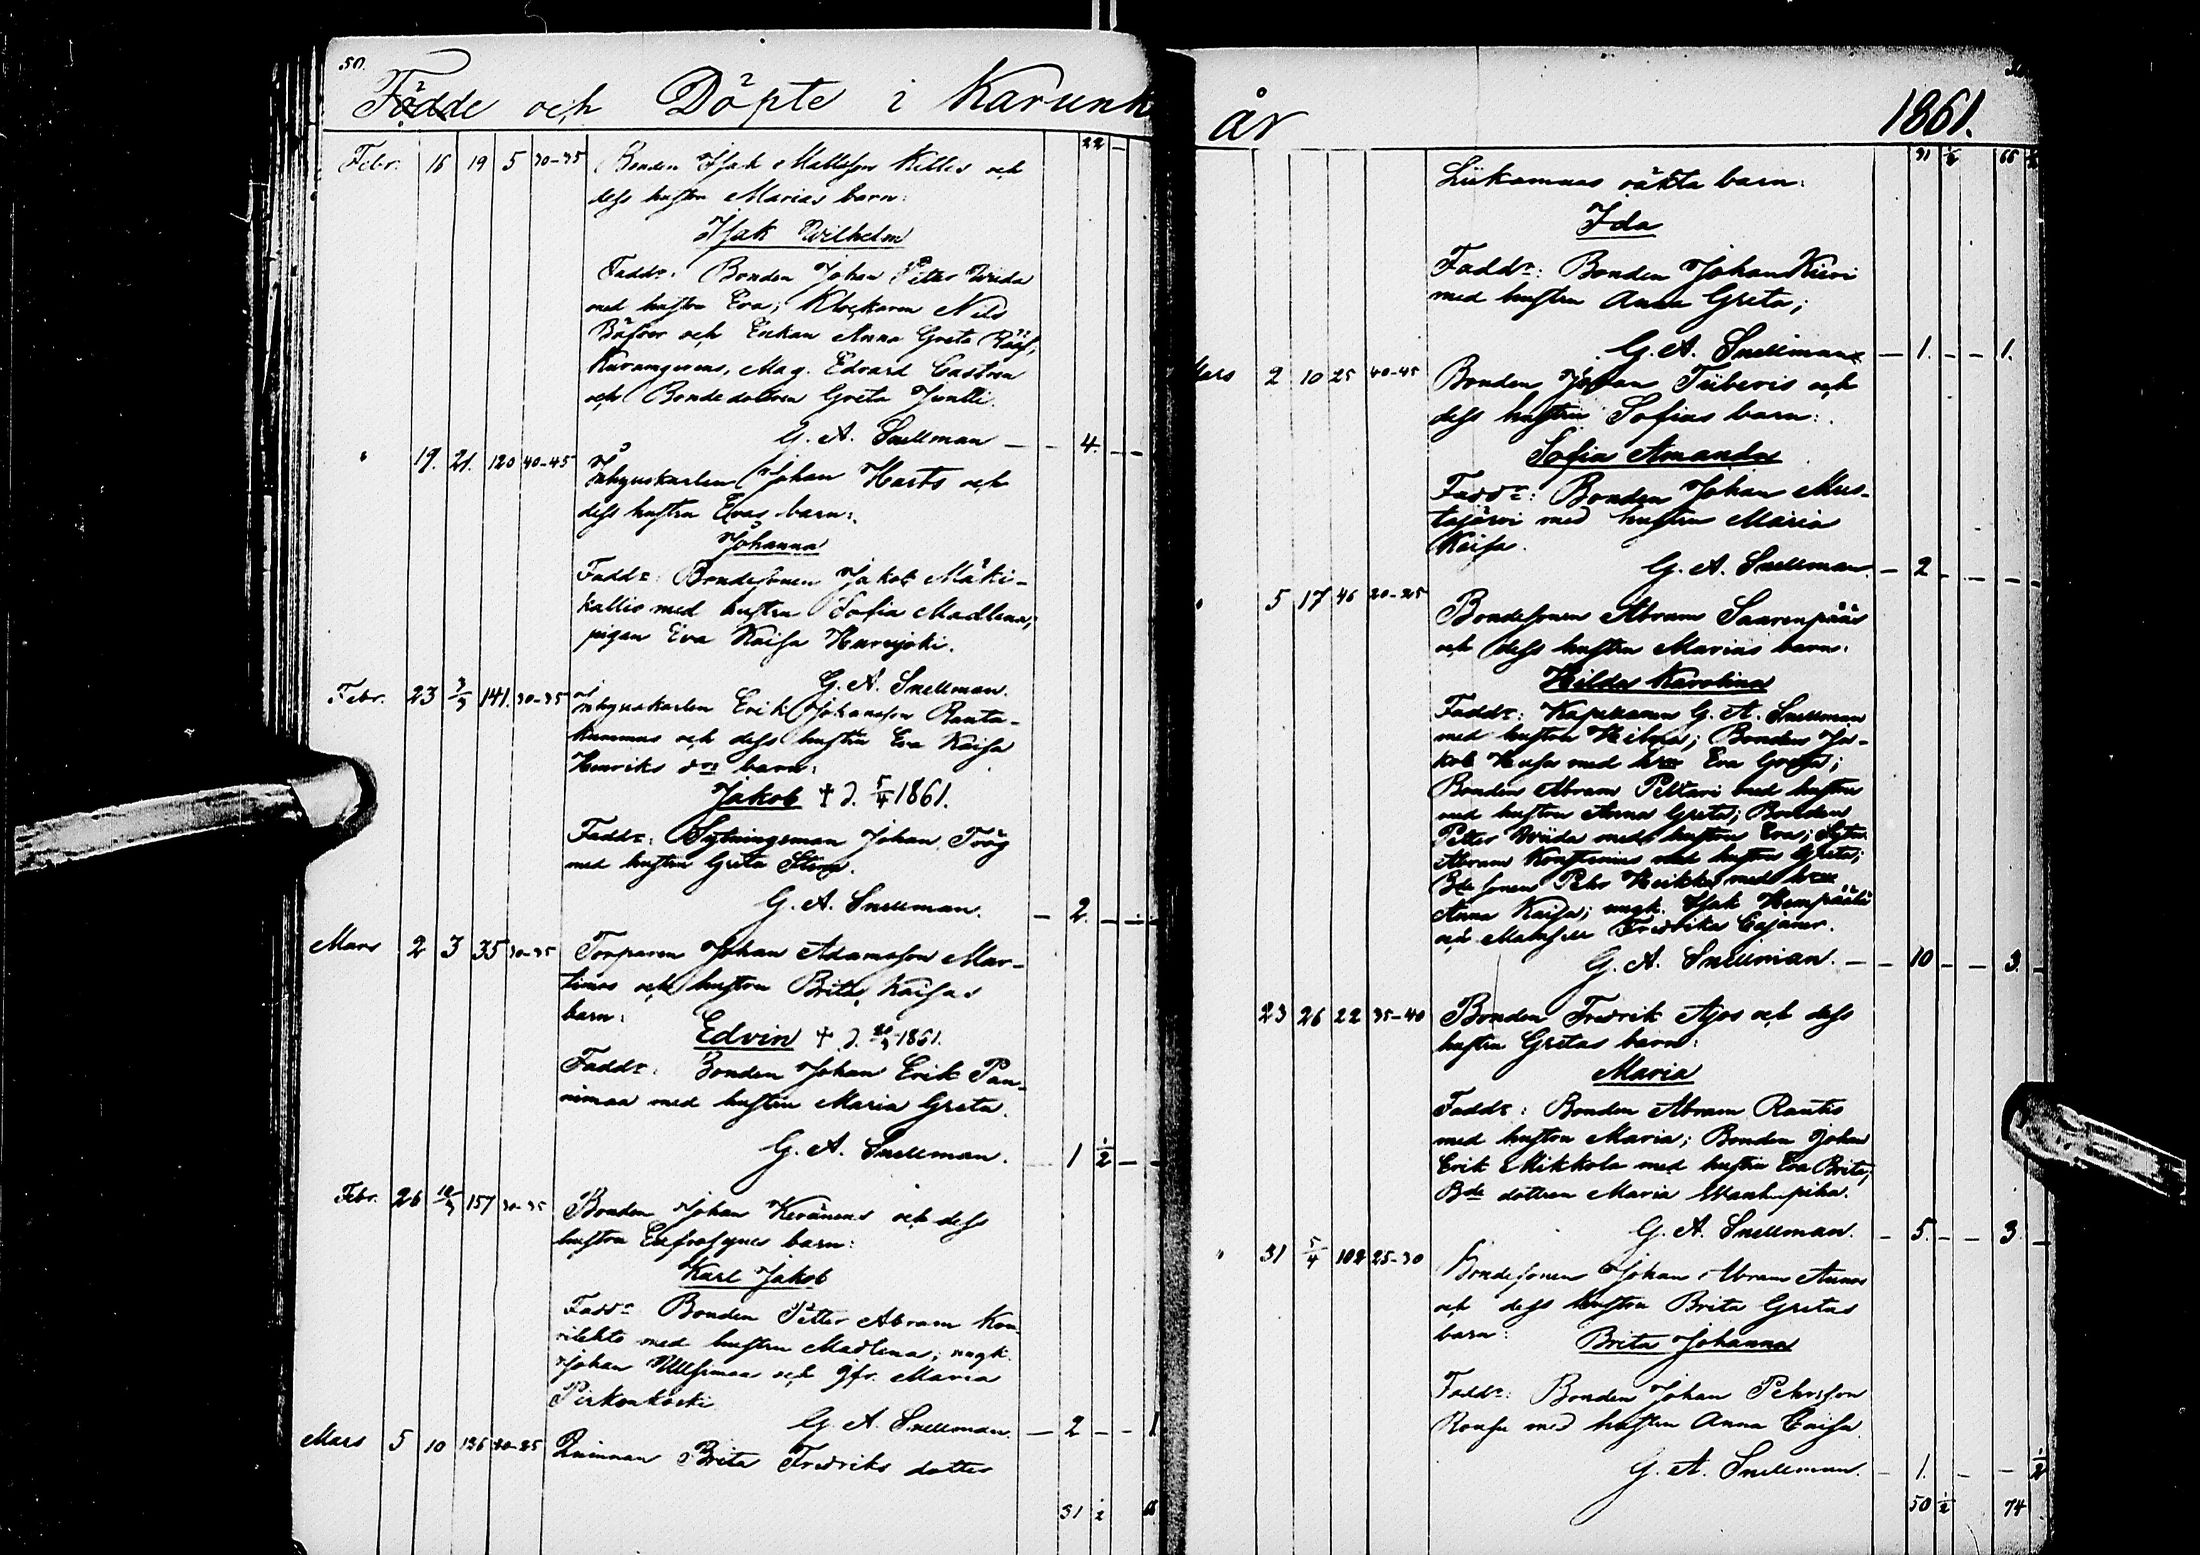 50.
Födde och Döpte i Karunk
22 —
Febr. 16 19 5 30-35 Bonden Isak Mattsson Killes och
dess hustru Marias barn:
Isak Wilhelm
Fadd:r: Bonden Johan Petter
med hustru Eva; Klockaren Nils
och Enkan Anna Greta
Mag. Edvard Castren
och Bondedottren Greta Juntti.
G. A. Snellman — — 4. — —
" 19. 21. 120 40-45 Inhyseskarlen Johan Harts och
dess hustru Evas barn:
Johanna
Fadd:r: Bondesonen Jakob Mäki-
kallio med hustru Sofia Madlena;
pigan Eva Kaisa Karsijoki.
G. A. Snellman.
Febr. 23 3/3 141. 30-35 Inhyseskarlen Erik Johansson Ranta-
kummus och dess hustru Eva Kaisa
Henriks d:rs barn:
Jakob † d. 5/4 1861.
Fadd:r: Sytningsman Johan Töög
med hustru Greta Stina.
G. A. Snellman. — 2. — —
Mars 2 3 35 30-35 Torparen Johan Adamsson Mar-
timos och hustru Brita Kaisas
barn:
Edvin † d. 20/3 1861.
Fadd:r: Bonden Johan Erik Pan-
nimaa med hustru Maria Greta.
G. A. Snellman. — 1 1/2 — —
Febr. 26 10/3 157 30-35 Bonden Johan Keränens och dess
hustru Eufrosynes barn:
Karl Jakob
Fadd:r Bonden Petter Abram Kou-
vilehto med hustru Madlena; ungk.
Johan och jfr. Maria
Pirkonkoski
G. A. Snellman. — 2 — — 1
Mars 5 10 136 20-25 Qvinnan Brita Fredriks dotter
31 1/2
år 1861.
31 1/2 66 1/2
Liikamaas oäkta barn:
Ida
Fadd:r: Bonden Johan Kiiri
med hustru Anna Greta;
G. A. Snellman — 1. — — 1.
Mars 2 10 25 40-45 Bonden Johan Tüberis och
dess hustru Sofias barn:
Sofia Amanda
Fadd:r: Bonden Johan Mus-
tajärvi med hustru Maria
Kaisa.
G. A. Snellman. — 2 — — —
" 5 17 46 20-25 Bondesonen Abram Saarenpääs
och dess hustru Marias barn:
Hilda Karolina
Fadd:r: Kapellanen G. A. Snellman
med hustru Hilma; Bonden Ja-
kob med h:ru Eva Greta;
Bonden Abram Peltari med hustru
med hustru Anna Greta; Bonden
Petter med hustru Eva; Sytn.
Abram Konstenius med hustru Greta;
B:de sonen Pehr Heikka med h:ru
Anna Kaisa; ungk. Isak Kempääli
och Mamsell Fredrika Cajaner.
G. A. Snellman. — — 10 — — 3. —
23 26 22 35-40 Bonden Fredrik Ajos och dess
hustru Gretas barn:
Maria
Fadd:r: Bonden Abram Rautio
med hustru Maria; Bonden Johan
Erik Mikkola med hustru Eva Brita;
B:de dottren Maria Wanhapiha.
G. A. Snellman. — 5. — — 3. —
" 31 5/4 102 25-30 Bondesonen Johan Abram Aunos
och dess hustru Brita Gretas
barn:
Brita Johanna
Fadd:r: Bonden Johan Pehrsson
Rousu med hustru Anna Caisa.
G. A. Snellman. — 1. — — 1/2
50 1/2 74